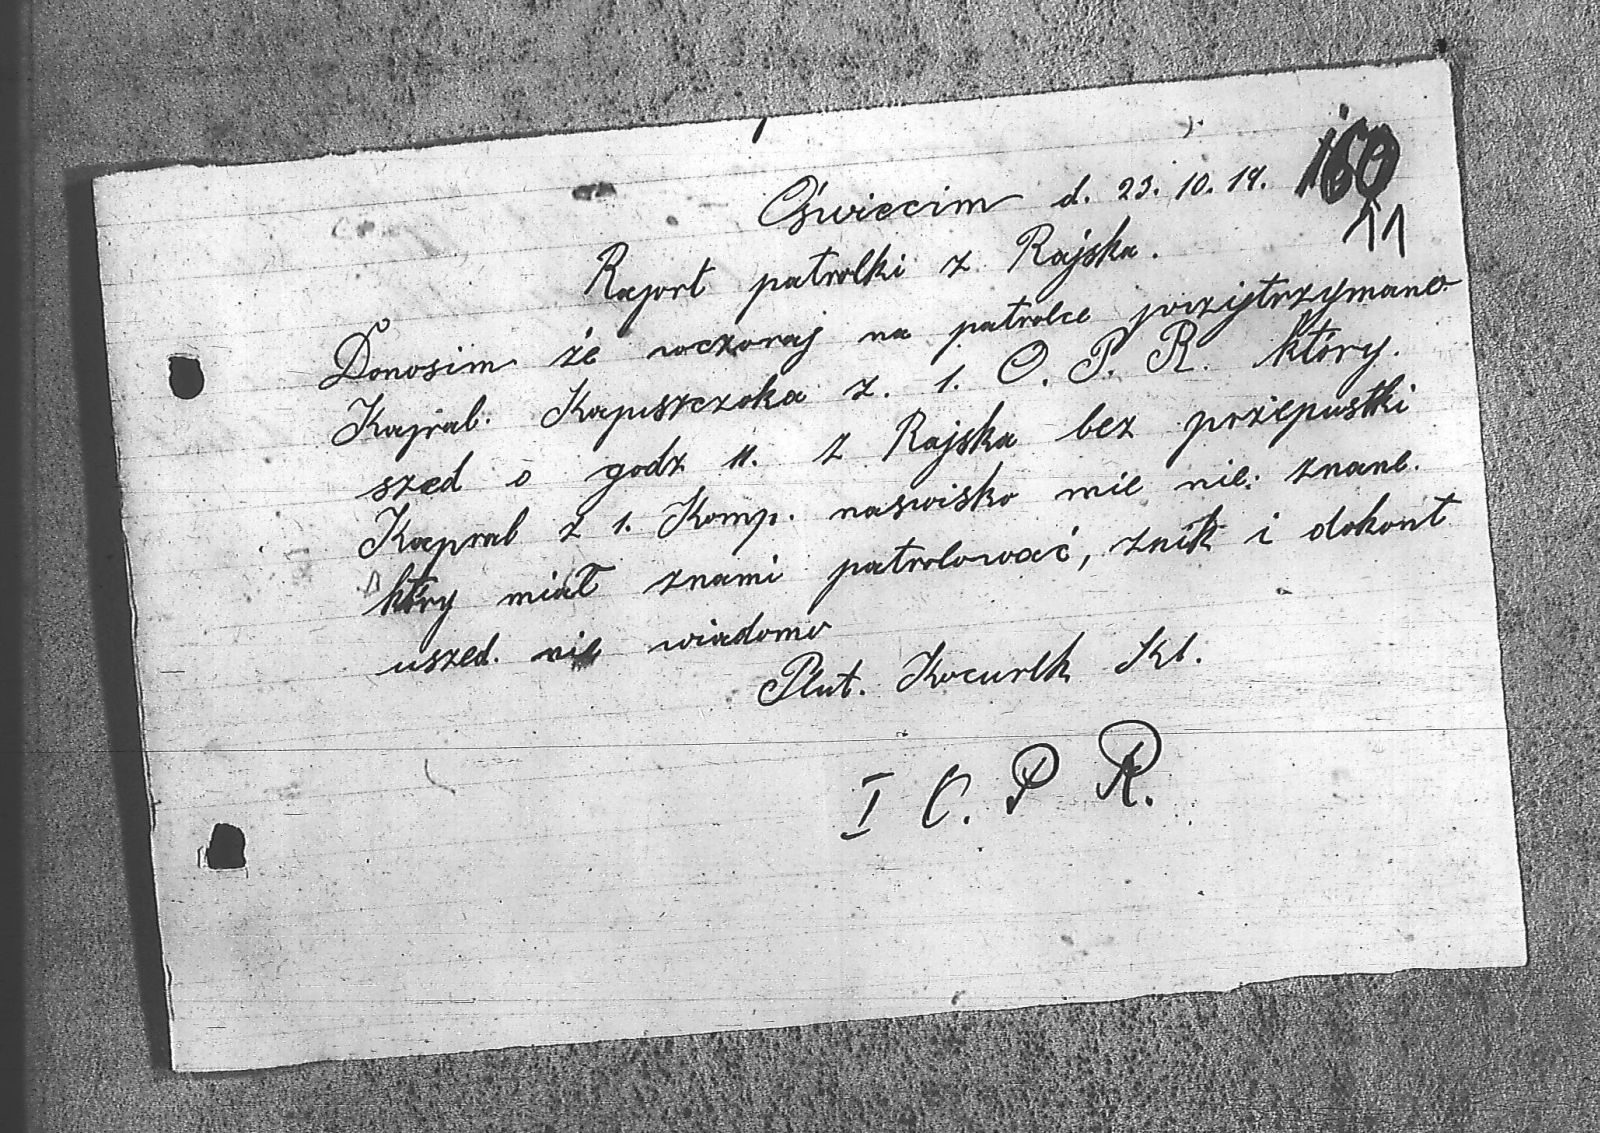 Oświecim d. 23. 10. 19.
11
Raport patrolki z Rajska.
Donosim że wczoraj na patrolce przijtrzymano
Kapral. Kapuszczoka z. 1. O. P. R. który.
szed o godz 11. z Rajska bez przepustki
Kapral z 1. Komp. naswisko mie nie: znane.
który miał znami patrolować, znik i dokont
uszed. nie wiadomo
Plut. Kocurek Kl.
I O. P R.